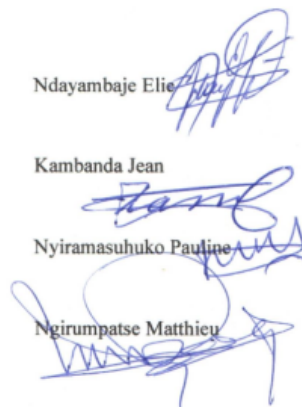 Ndayambaje Elie
Kambanda Jean
Nyiramasuhuko Pauline
Ngirumpatse Matthieu